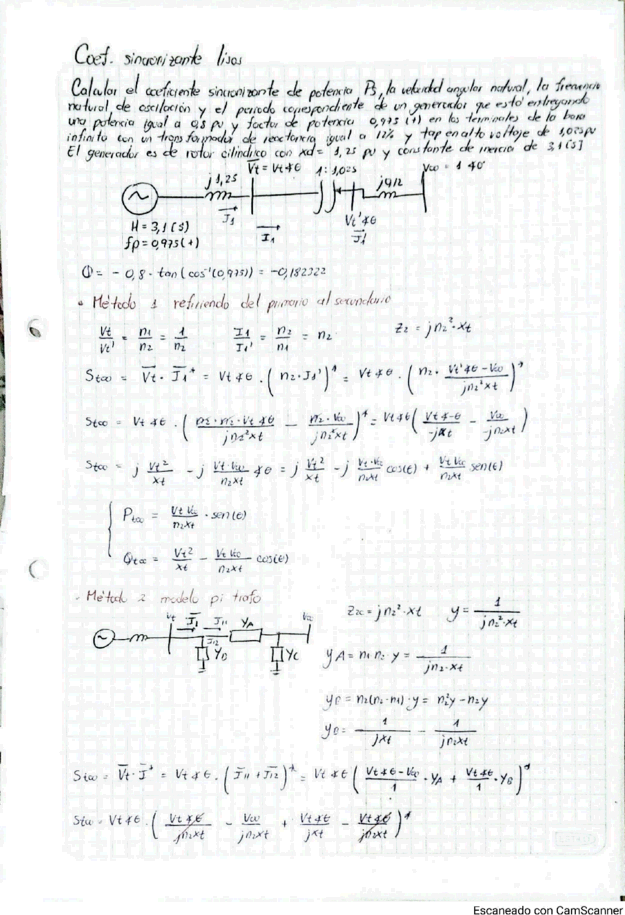 Coef. sincronizante lisos
Calcular el coeficiente sincronizante de potencia Ps, la velocidad angular natural, la frecuencia
natural de oscilación y el periodo correspondiente de un generador que está entregando
una potencia igual a 0,8 pu y factor de potencia 0,975 (+) en los terminales de la barra
infinita con un transformador de reactancia igual a 12% y tap en alto voltaje de 1,025pu
El generador es de rotor cilíndrico con xd = 1,25 pu y constante de inercia de 3,1[s]
j1,25 V̄t = Vt∡θ 1:1,025 j0,12 V∞ = 1∡0°
I̅1 Vt'∡θ
H = 3,1(s) I̅1 I̅1'
fp = 0,975(+)
Q = - 0,8 · tan(cos⁻¹(0,975)) = -0,182322
• Método 1 refiriendo del primario al secundario
Vt/Vt' = n1/n2 = 1/n2 I1/I1' = n2/n1 = n2 Z2 = jn2²·xt
St∞ = V̄t · I̅1* = Vt∡θ · (n2·I1')* = Vt∡θ · (n2 · (Vt'∡θ - V∞)/(jn2²xt))*
St∞ = Vt∡θ · ((n2·n2·Vt∡θ)/(jn2²xt) - (n2·V∞)/(jn2²xt))* = Vt∡θ ((Vt∡-θ)/(-jxt) - V∞/(jn2xt))
St∞ = j Vt²/xt - j (Vt·V∞)/(n2xt) ∡θ = j Vt²/xt - j (Vt·V∞)/(n2xt) cos(θ) + (Vt V∞)/(n2xt) sen(θ)
Pt∞ = (Vt V∞)/(n2xt) · sen(θ)
Qt∞ = Vt²/xt - (Vt V∞)/(n2xt) cos(θ)
- Método 2 modelo pi trafo
Z2 = jn2²·xt y = 1/(jn2²·xt)
Vt I̅1 I̅11 YA V∞
I̅12 YB YC
yA = n1 n2 · y = 1/(jn2·xt)
yB = n2(n2-n1)·y = n2²y - n2y
yB = 1/(jxt) - 1/(jn2xt)
St∞ = V̄t · I̅* = Vt∡θ · (I̅11 + I̅12)* = Vt∡θ ((Vt∡θ - V∞)/1 · yA + (Vt∡θ)/1 · yB)*
St∞ = Vt∡θ · ((Vt∡θ)/(jn2xt) - V∞/(jn2xt) + (Vt∡θ)/(jxt) - (Vt∡θ)/(jn2xt))*
Escaneado con CamScanner